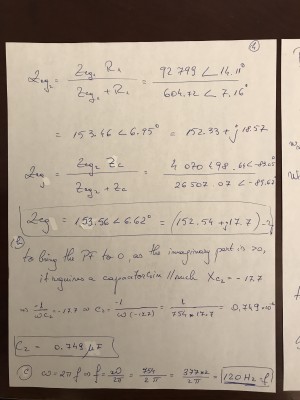 (4)
Zeq₂ = Zeq₁ R₂ / Zeq₁ + R₂ = 92 799 ∠ 14.11° / 604.72 ∠ 7.16°
= 153.46 ∠ 6.95° = 152.33 + j 18.57
Zeq = Zeq₂ Zc / Zeq₂ + Zc =
Zeq = 153.56 ∠ 6.62° = (152.54 + j17.7)
(b)
to bring the PF to 0, as the imaginary part is >0,
it requires a capacitor in // such Xc₂ = - 17.7
⇒ -1 / ωC₂ = -17.7 ⇒ C₂ = -1 / ω(-17.7) = 1 / 754 * 17.7 = 0.749
C₂ = 0.749 μF
(c) ω = 2πf ⇒ f = ω / 2π = 754 / 2π = 377×2 / 2π = 120 Hz = f